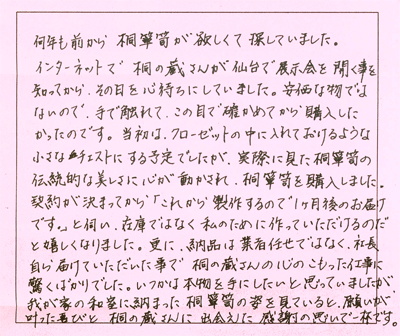 何年も前から 桐箪笥が欲しくて 探していました。
インターネットで 桐の蔵さんが仙台で展示会を開く事を
知ってから、その日を心待ちにしていました。安価な物では
ないので、手で触れて、この目で確かめてから購入した
かったのです。当初は、クローゼットの中に入れておけるような
小さなチェストにする予定でしたが、実際に見た桐箪笥の
伝統的な美しさに心が動かされ、桐箪笥を購入しました。
契約が決まってから「これから製作するので1ヶ月後のお届け
です。」と伺い、在庫ではなく私のために作っていただけるのだ
と嬉しくなりました。更に、納品は業者任せではなく、社長
自ら届けていただいた事で 桐の蔵さんの心のこもった仕事に
驚くばかりでした。いつかは本物を手にしたいと思っていましたが、
我が家の和室に納まった桐箪笥の姿を見ていると、願いが
叶った喜びと 桐の蔵さんに出会えた感謝の思いで一杯です。